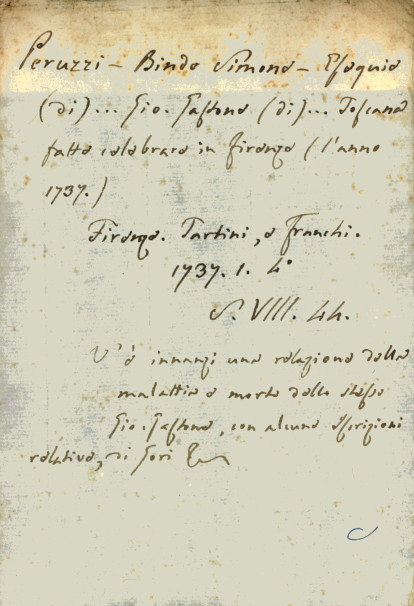 Peruzzi - Bindo Simone - Esequie
(di)... Gio. Gastone (di)... Toscana
fatte celebrare in Firenze (l'anno
1737.)
Firenze. Tartini, e Franchi.
1737. 1. 4°
S. VIII. 44.
V'è innanzi una relazione della
malattia e morte dello stesso
Gio. Gastone, con alcune Iscrizioni
relative, di Gori